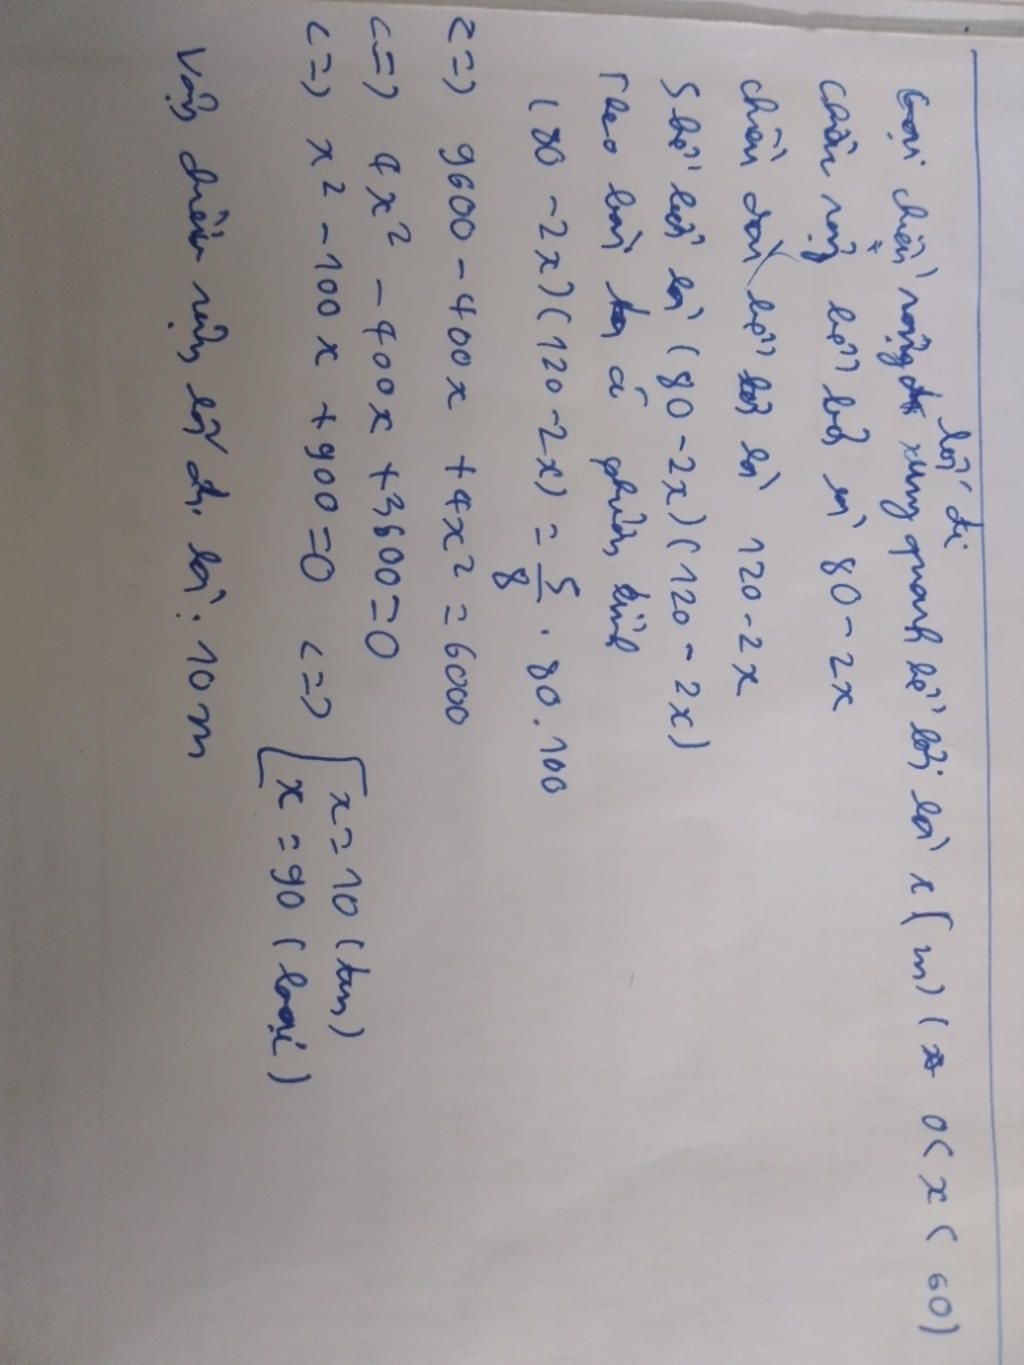 lối đi
Gọi chiều rộng xung quanh bể bơi là x (m) ( 0 < x < 60)
chiều rộng bể bơi là 80 - 2x
chiều dài bể bơi là 120 - 2x
S bể bơi là (80 - 2x)(120 - 2x)
Theo bài ta có phương trình
(80 - 2x)(120 - 2x) = 5/8 . 80 . 100
<=> 9600 - 400x + 4x² = 6000
<=> 4x² - 400x + 3600 = 0
<=> x² - 100x + 900 = 0 <=> [ x = 10 (tm)
x = 90 (loại)
Vậy chiều rộng lối đi là: 10 m